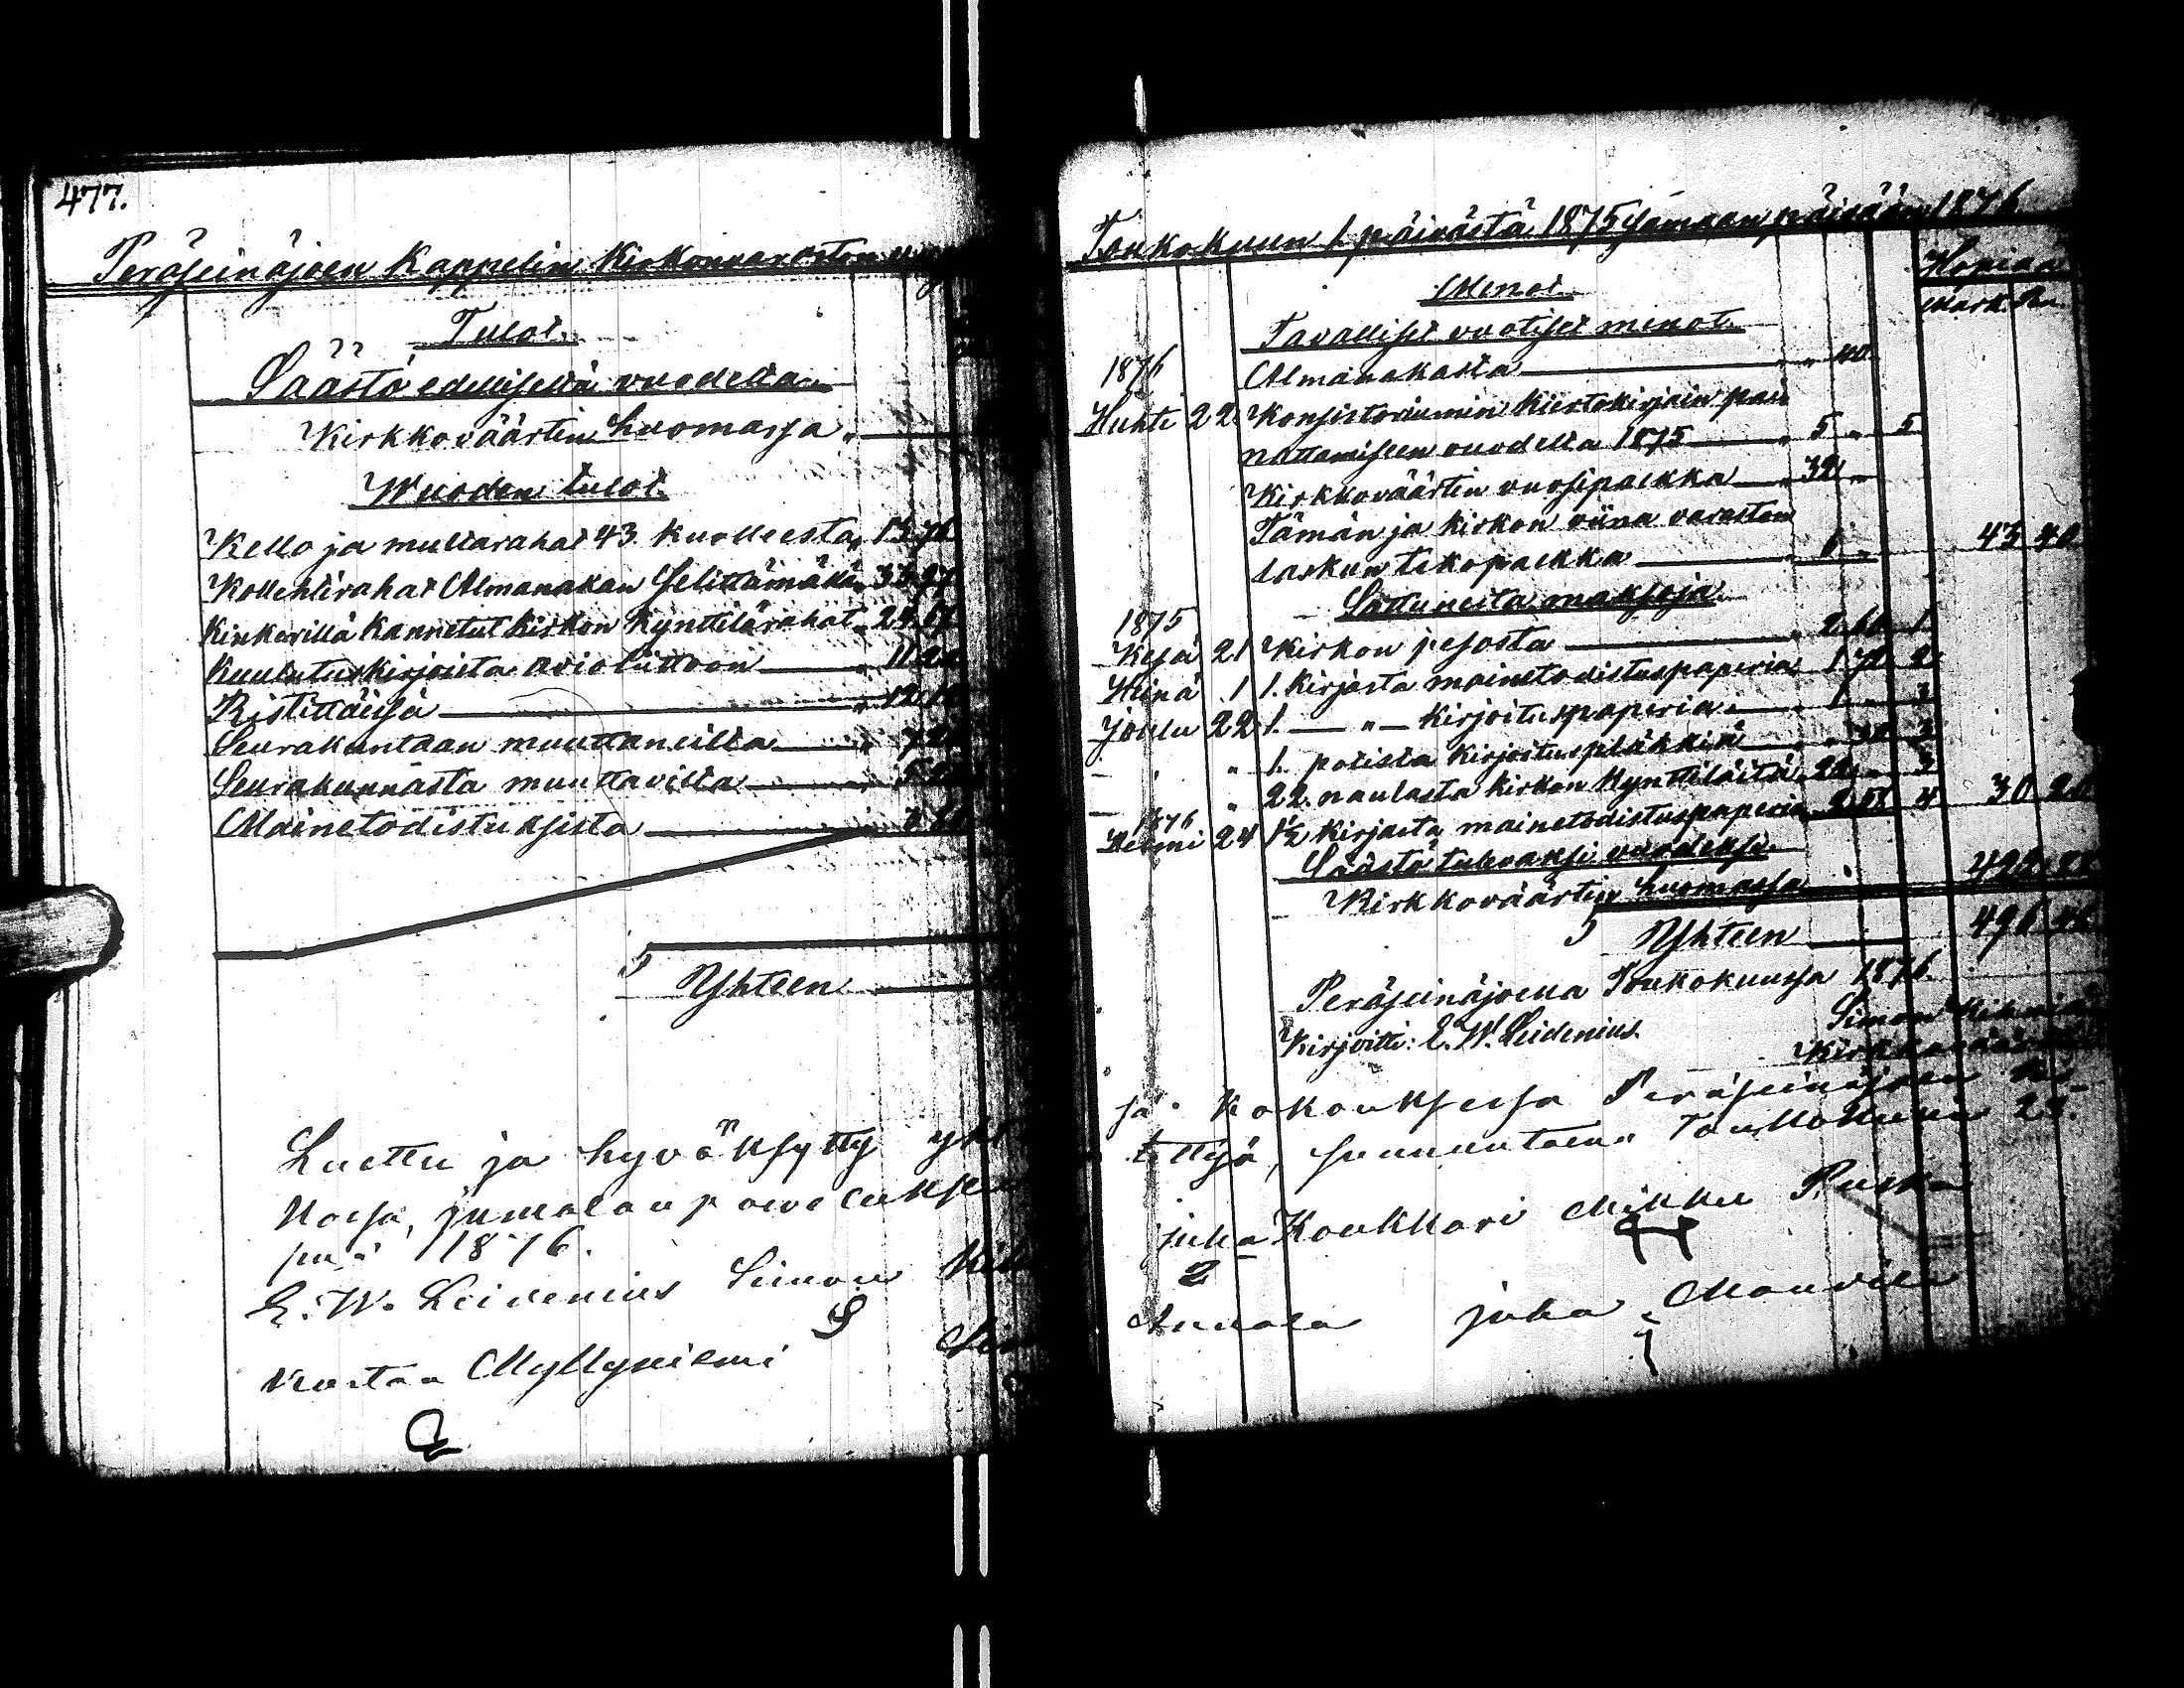 477.
Peräseinäjoen Kappelin Kirkonvaraston
Tulot.
Säästö edelliseltä vuodelta
Kirkkoväärtin huomassa „
Wuoden tulot.
Kello ja multarahat 43 kuolleesta „ 13 76
Kollehtirahat Almanakan selittämäkä „ 33 97
Kinkerillä kannetut kirkon kynttilärahat „
Kuulutuskirjoista avioliittoon „ 11 20
Ristittäissä „ 12
Seurakuntaan muuttaneilta „ 7
Seurakunnasta muuttavilta „ 5
Mainetodistuksista „
Yhteen
Luettu ja hyväksytty
kossa, jumalanpalveluksen
1876.
E. W. Leidenius Simon
Kustaa Myllyniemi
Toukokuun 1 päivästä 1875 samaan päivään 1876
Menot.
Hopiaa
Mark. Pn.
Tavalliset vuotiset menot.
1876 Almanakasta „ „ 40
Huhti 22 Konsistoriumin kiertokirjain pai
nattamiseen vuodelta 1875 „ 5 „ 5
Kirkkoväärtin vuosipalkka „ 32 „
Tämän ja kirkon viina varaston
laskun tekopalkka „ 6 „ 43 40
Sattuneita maksoja.
1875
Kesä 21 Kirkon pesosta „ 2 60 1
Heinä 1 1. Kirjasta mainetodistuspaperia „ 1 72 2
Joulu 22 1. — „ — Kirjoituspaperia „ 1 „ 3
„ 1. potista kirjoituspläkkiä „ „ 30 3
„ 22. naulasta kirkon kynttilöitä „ 22 „ 3
1876
Helmi 24 1½ kirjasta mainetodistuspaperia „ 2 58 4 30 20
Säästö tulevaksi vuodeksi
Kirkkoväärtin huomassa
Yhteen 496
Peräseinäjoella Toukokuussa 1876.
Kirjoitti: E. W. Leidenius.
Simon
sä kokouksessa Peräseinäjoen
Toukokuun
Juha Koukkari Mikki Puska
Juha